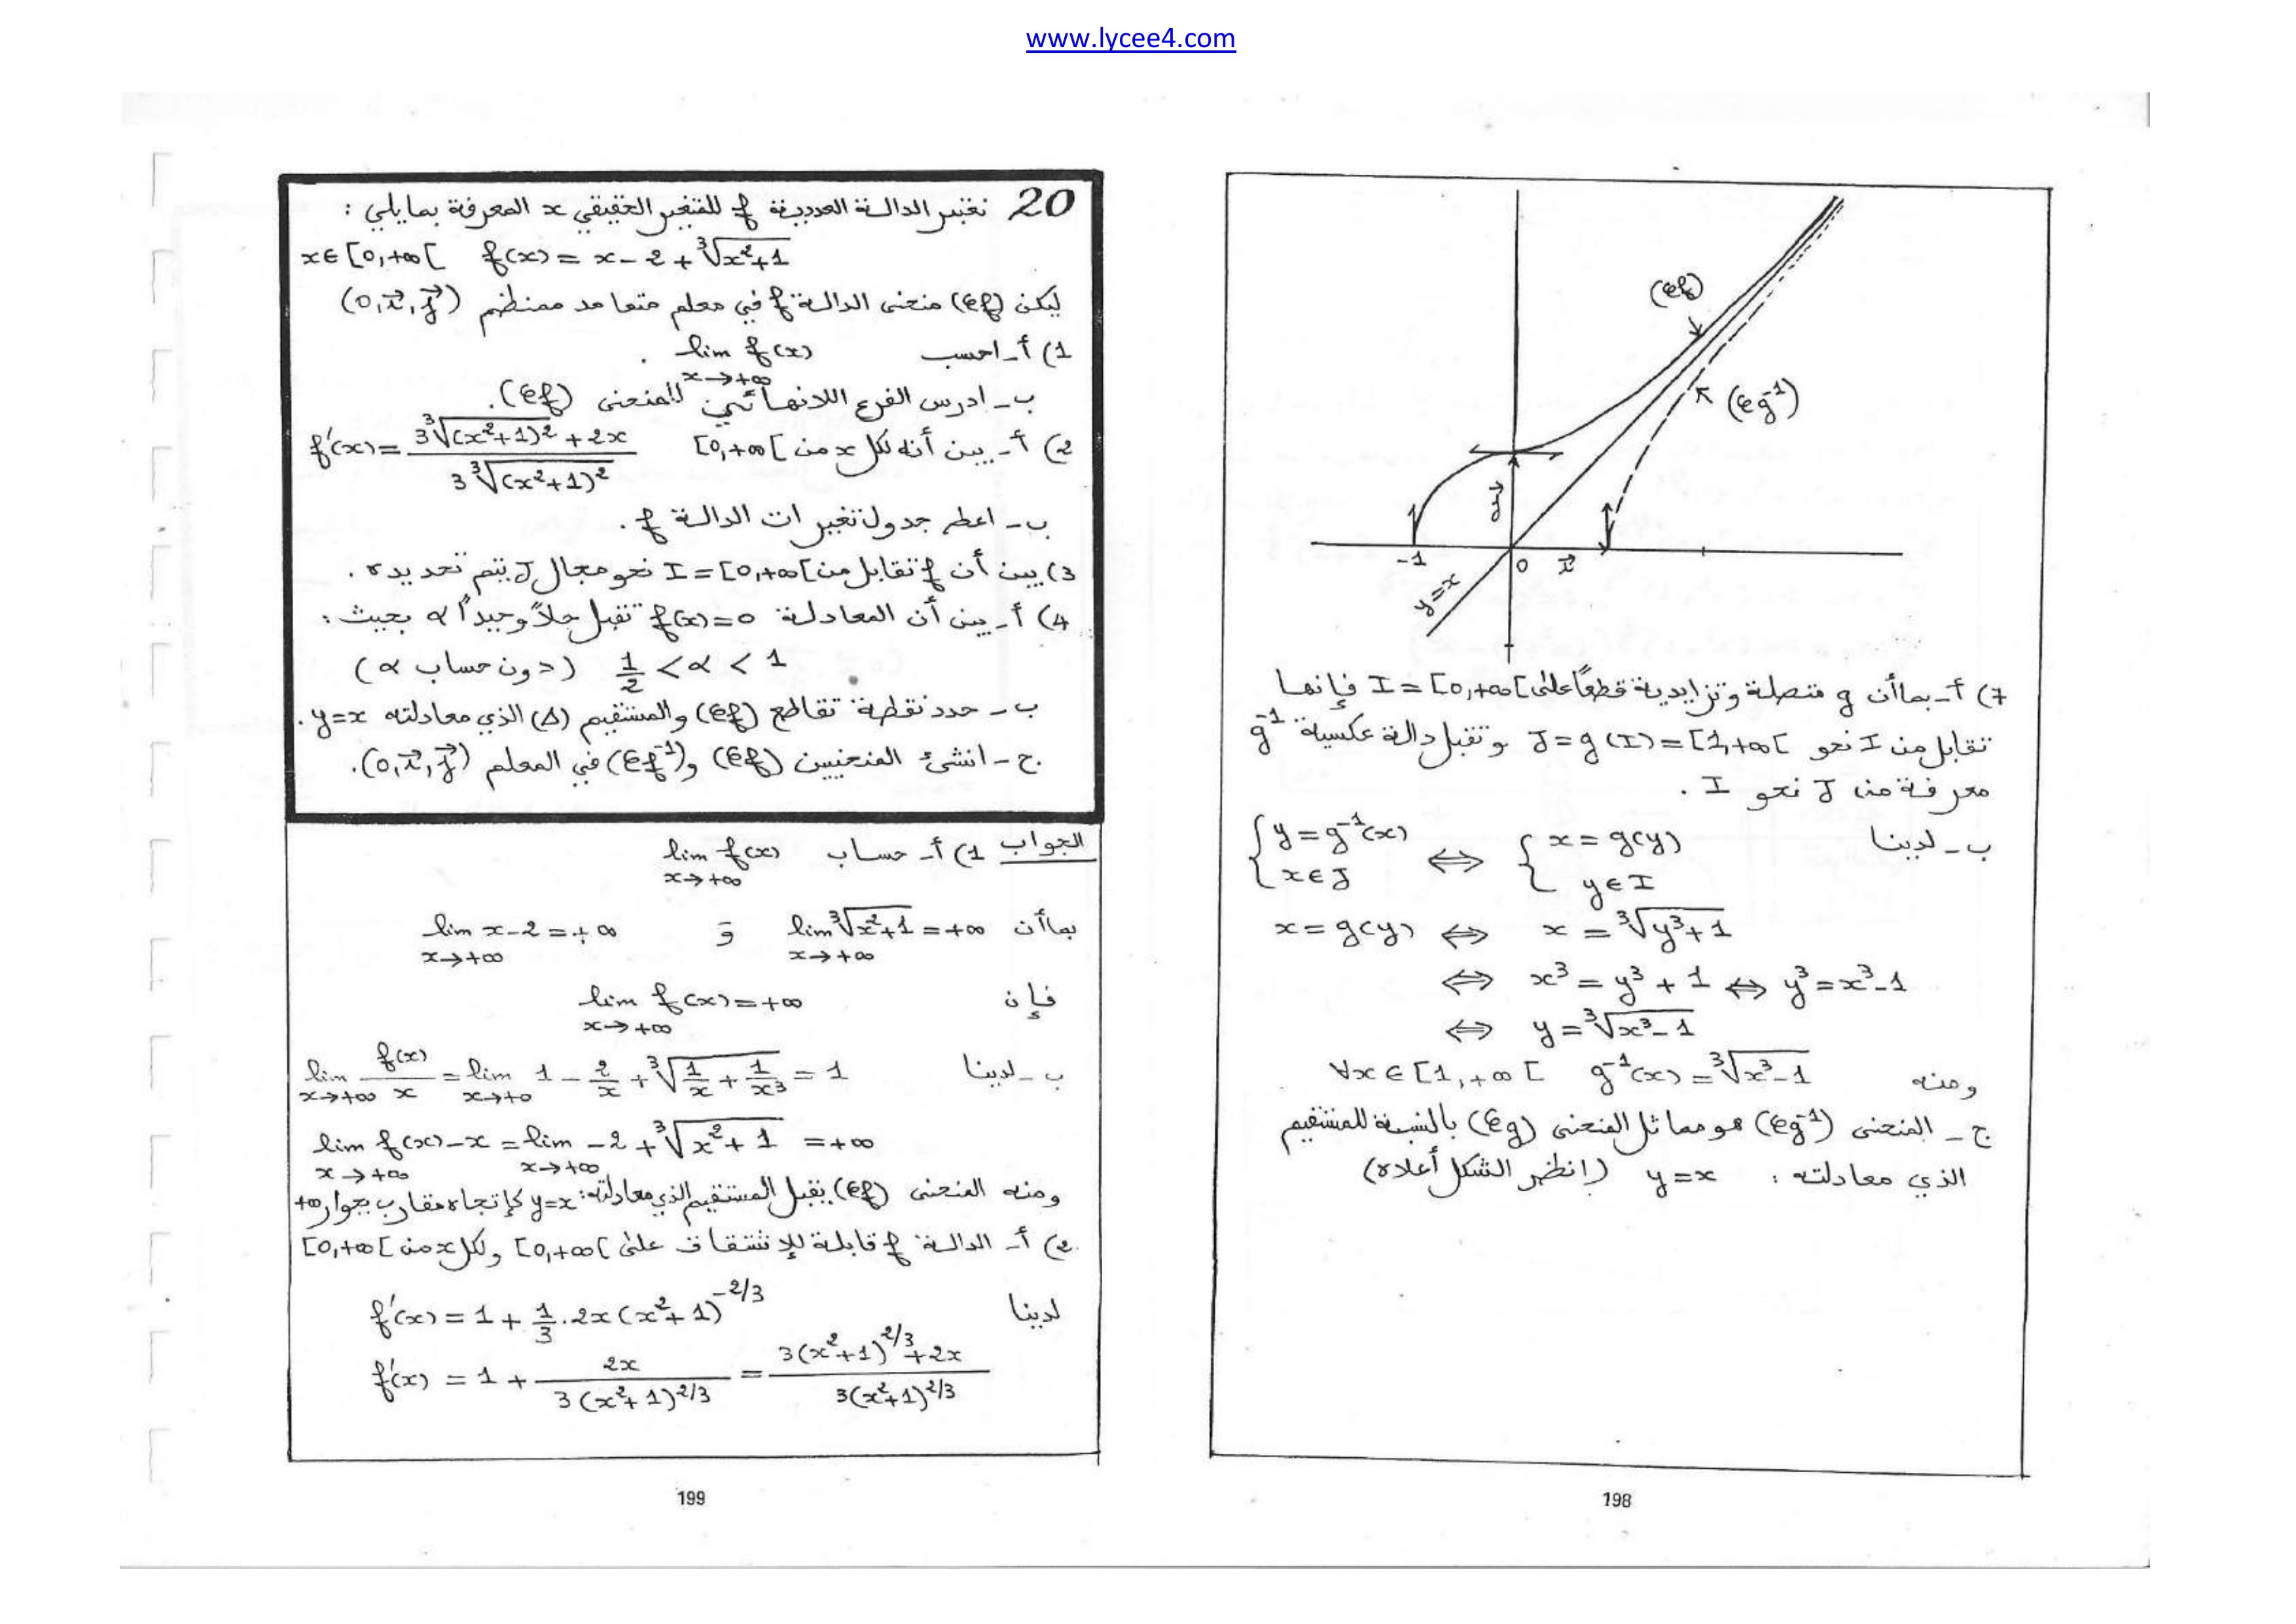 www.lycee4.com
(𝒞f)
(𝒞g⁻¹)
-1 0 i⃗ j⃗
y=x
7) أ- بما أن g متصلة وتزايدية قطعاً على I = [0,+∞[ فإنها
تقابل من I نحو J = g(I) = [1,+∞[ وتقبل دالة عكسية g⁻¹
معرفة من J نحو I .
ب- لدينا { x = g(y) , y∈I ⇔ { y = g⁻¹(x) , x∈J
x = g(y) ⇔ x = ³√(y³+1)
⇔ x³ = y³ + 1 ⇔ y³ = x³-1
⇔ y = ³√(x³-1)
ومنه ∀x∈[1,+∞[ g⁻¹(x) = ³√(x³-1)
ج- المنحنى (𝒞g⁻¹) هو مماثل المنحنى (𝒞g) بالنسبة للمستقيم
الذي معادلته : y=x (انظر الشكل أعلاه)
198
20 نعتبر الدالة العددية f للمتغير الحقيقي x المعرفة بمايلي :
x∈[0,+∞[ f(x) = x-2+³√(x²+1)
ليكن (𝒞f) منحنى الدالة f في معلم متعامد ممنظم (0,i⃗,j⃗)
1) أ- احسب lim f(x) x→+∞ .
ب- ادرس الفرع اللانهائي للمنحنى (𝒞f).
2) أ- بين أنه لكل x من [0,+∞[ f'(x) = (3³√(x²+1)² + 2x) / (3³√(x²+1)²)
ب- اعط جدول تغيرات الدالة f .
3) بين أن f تقابل من I = [0,+∞[ نحو مجال J يتم تحديده .
4) أ- بين أن المعادلة f(x)=0 تقبل حلاً وحيداً α بحيث :
1/2 < α < 1 (دون حساب α)
ب- حدد نقطة تقاطع (𝒞f) والمستقيم (Δ) الذي معادلته y=x.
ج- انشئ المنحنيين (𝒞f) و(𝒞f⁻¹) في المعلم (0,i⃗,j⃗).
الجواب 1) أ- حساب lim f(x) x→+∞
بما أن lim ³√(x²+1) = +∞ x→+∞ و lim x-2 = +∞ x→+∞
فإن lim f(x) = +∞ x→+∞
ب- لدينا lim f(x)/x x→+∞ = lim 1 - 2/x + ³√(1/x + 1/x³) = 1 x→+∞
lim f(x)-x x→+∞ = lim -2+³√(x²+1) = +∞ x→+∞
ومنه المنحنى (𝒞f) يقبل المستقيم الذي معادلته: y=x كإتجاه مقارب بجوار +∞
2) أ- الدالة f قابلة للإشتقاق على [0,+∞[ ولكل x من [0,+∞[
لدينا f'(x) = 1 + 1/3 . 2x (x²+1)^(-2/3)
f'(x) = 1 + 2x / (3(x²+1)^(2/3)) = (3(x²+1)^(2/3) + 2x) / (3(x²+1)^(2/3))
199